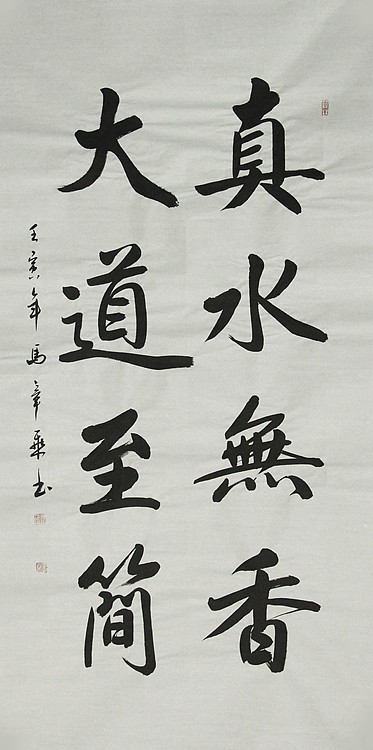 真水無香
大道至簡
壬寅年馬章乘书